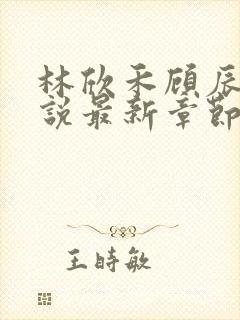 林欣禾顾辰
說最新章節
王時敏